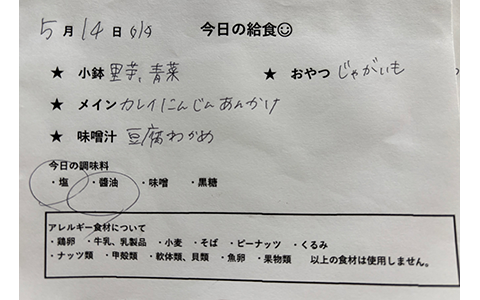 5月14日 今日の給食☺
★ 小鉢 里芋、青菜 ★ おやつ じゃがいも
★ メイン カレイにんじんあんかけ
★ 味噌汁 豆腐わかめ
今日の調味料
・塩 ・醬油 ・味噌 ・黒糖
アレルギー食材について
・鶏卵 ・牛乳、乳製品 ・小麦 ・そば ・ピーナッツ ・くるみ
・ナッツ類 ・甲殻類 ・軟体類、貝類 ・魚卵 ・果物類 以上の食材は使用しません。